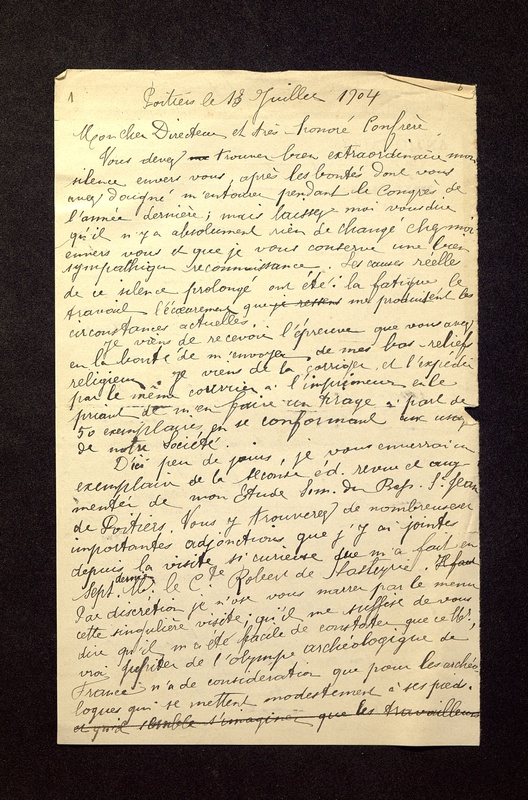 1
Poitiers le 18 Juillet 1904
Mon cher Directeur et très honoré Confrère,
Vous devez trouver bien extraordinaire mon
silence envers vous, après les bontés dont vous
avez daigné m'entourer pendant le Congrès de
l'année dernière ; mais laissez moi vous dire
qu'il n'y a absolument rien de changé chez moi
envers vous et que je vous conserve une bien
sympathique reconnaissance. Les causes réelles
de ce silence prolongé ont été : la fatigue, le
travail l'écœurement que je ressens me produisent les
circonstances actuelles.
Je viens de recevoir l'épreuve que vous avez
eu la bonté de m'envoyer, de mes bas-reliefs
religieux. Je viens de la corriger et l'expédie
par le même courrier à l'imprimeur en le
priant de m'en faire un tirage à part de
50 exemplaires, en se conformant aux usages
de notre Société.
D'ici peu de jours, je vous enverrai un
exemplaire de la seconde éd. revue et aug
mentée de mon Etude Som. du Bapt. St Jean
de Poitiers. Vous y trouverez de nombreuses et
importantes adjonctions que j'y ai jointes
depuis la visite si curieuse que m'a fait en
Sept. dernier Mr. le Cte Robert de Lasteyrie.
Par discretion je n'ose vous narrer par le menu
cette singulière visite, qu'il me suffise de vous
dire qu'il m'a été facile de constater que ce Mr,
vrai Jupiter de l'olympe archéologique de
France n'a de consideration que pour les archéo
logues qui se mettent modestement à ses pieds.
et qu'il semble s'imaginer que les travailleurs